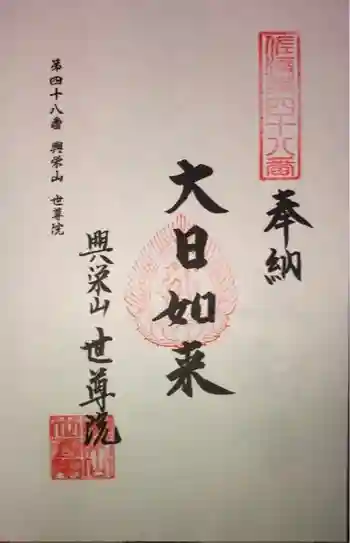 佐渡第四十八番
奉納
大日如来
興栄山 世尊院
第四十八番 興栄山 世尊院